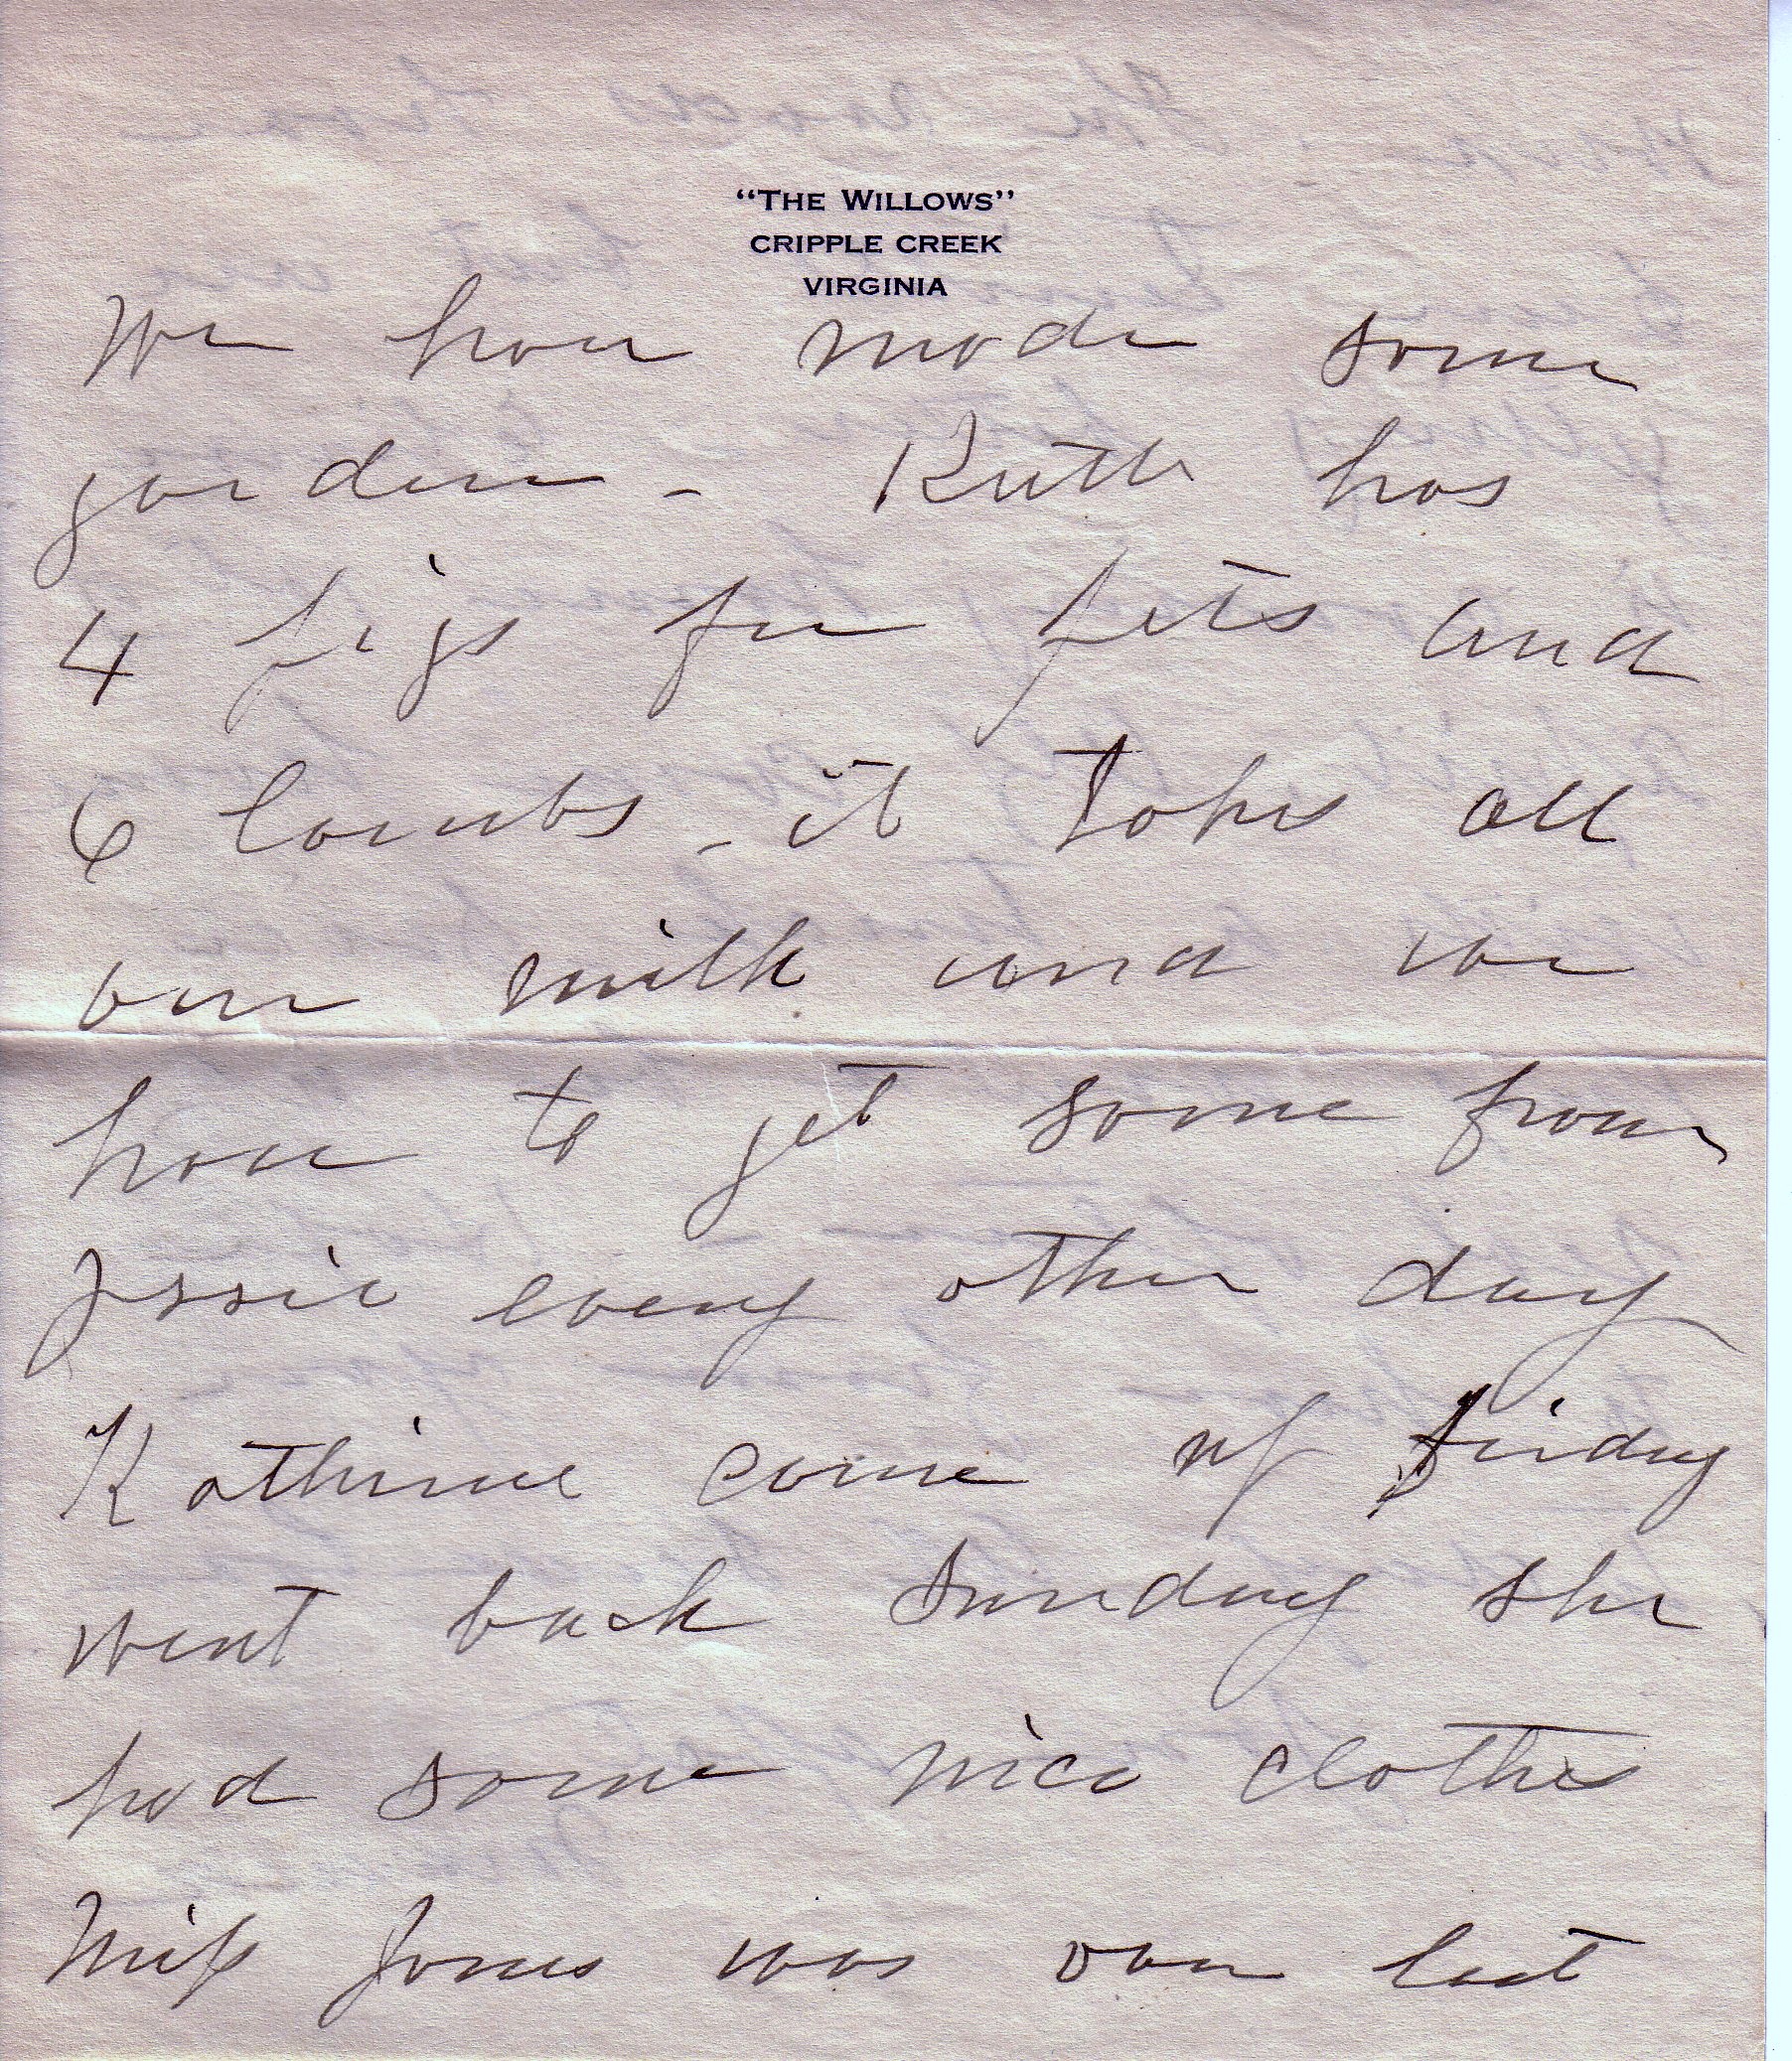 "THE WILLOWS"
CRIPPLE CREEK
VIRGINIA
We have made some
garden - Ruth has
4 pigs for pets and
6 lambs - it takes all
our milk and we
have to get some from
Jessie every other day
Kathrine come up Friday
went back Sunday she
had some nice clothes
Miss Jones was over last